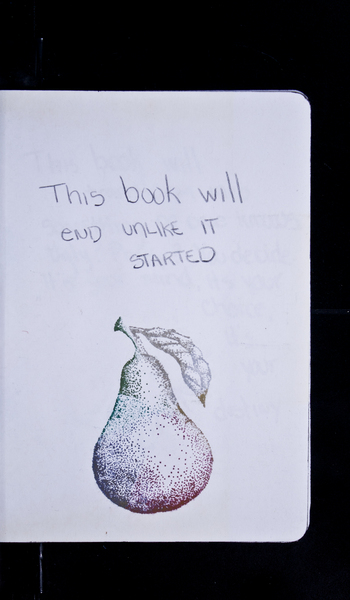 This book will
END UNLIKE IT
STARTED